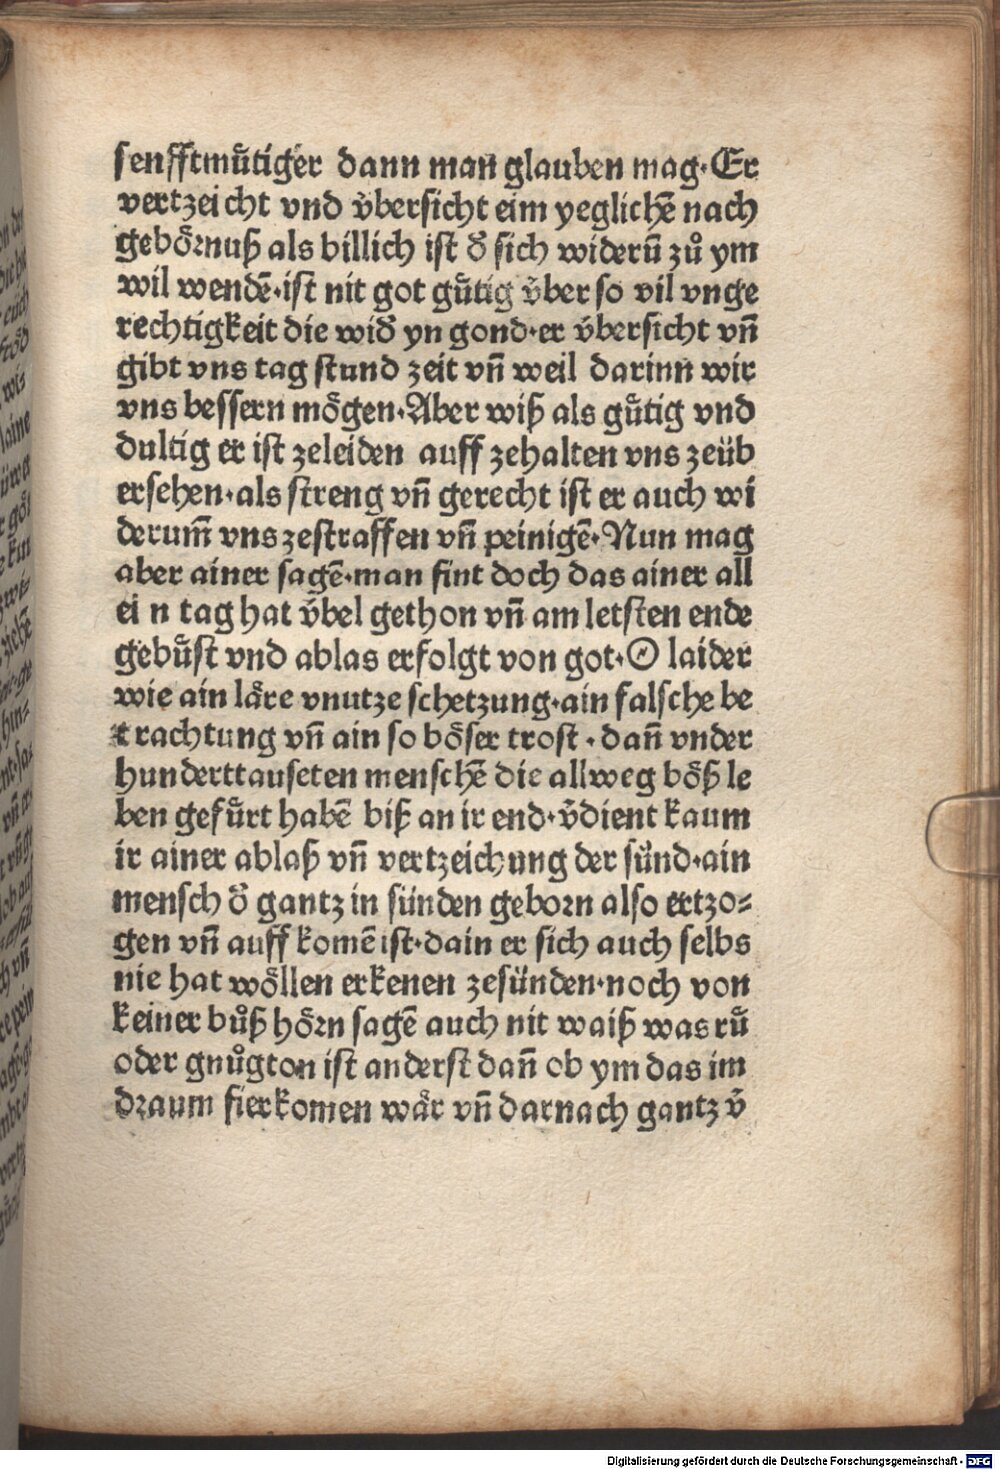 senfftmuͤtiger dann man glauben mag·Er
vertzeicht vnd v̈bersicht eim yeglichē nach
geboͤrnuß als billich ist ď sich widerū zů ym
wil wendē·ist nit got guͤtig v̈ber so vil vnge
rechtigkeit die wiď yn gond·er v̈bersicht vn̄
gibt vns tag stund zeit vn̄ weil darinn wir
vns bessern moͤgen·Aber wiß als guͤtig vnd
dultig er ist zeleiden auff zehalten vns zeüb
ersehen·als streng vn̄ gerecht ist er auch wi
derum̄ vns zestraffen vn̄ peinigē·Nun mag
aber ainer sagē·man fint doch das ainer all
ei n tag hat v̈bel gethon vn̄ am letsten ende
gebuͤst vnd ablas erfolgt von got·O laider
wie ain laͤre vnutze schetzung·ain falsche be
trachtung vn̄ ain so boͤser trost·dan̄ vnder
hunderttauseten menschē die allweg boͤß le
ben gefuͤrt habē biß an ir end·v̈dient kaum
ir ainer ablaß vn̄ vertzeichung der sünd·ain
mensch ď gantz in sünden geborn also ertzo⸗
gen vn̄ auff komē ist·dain er sich auch selbs
nie hat woͤllen erkenen zesünden·noch von
keiner bůß hoͤrn sagē auch nit waiß was rů
oder gnůgton ist anderst dan̄ ob ym das im
draum fierkomen waͤr vn̄ darnach gantz v̈
Digitalisierung gefördert durch die Deutsche Forschungsgemeinschaft - DFG